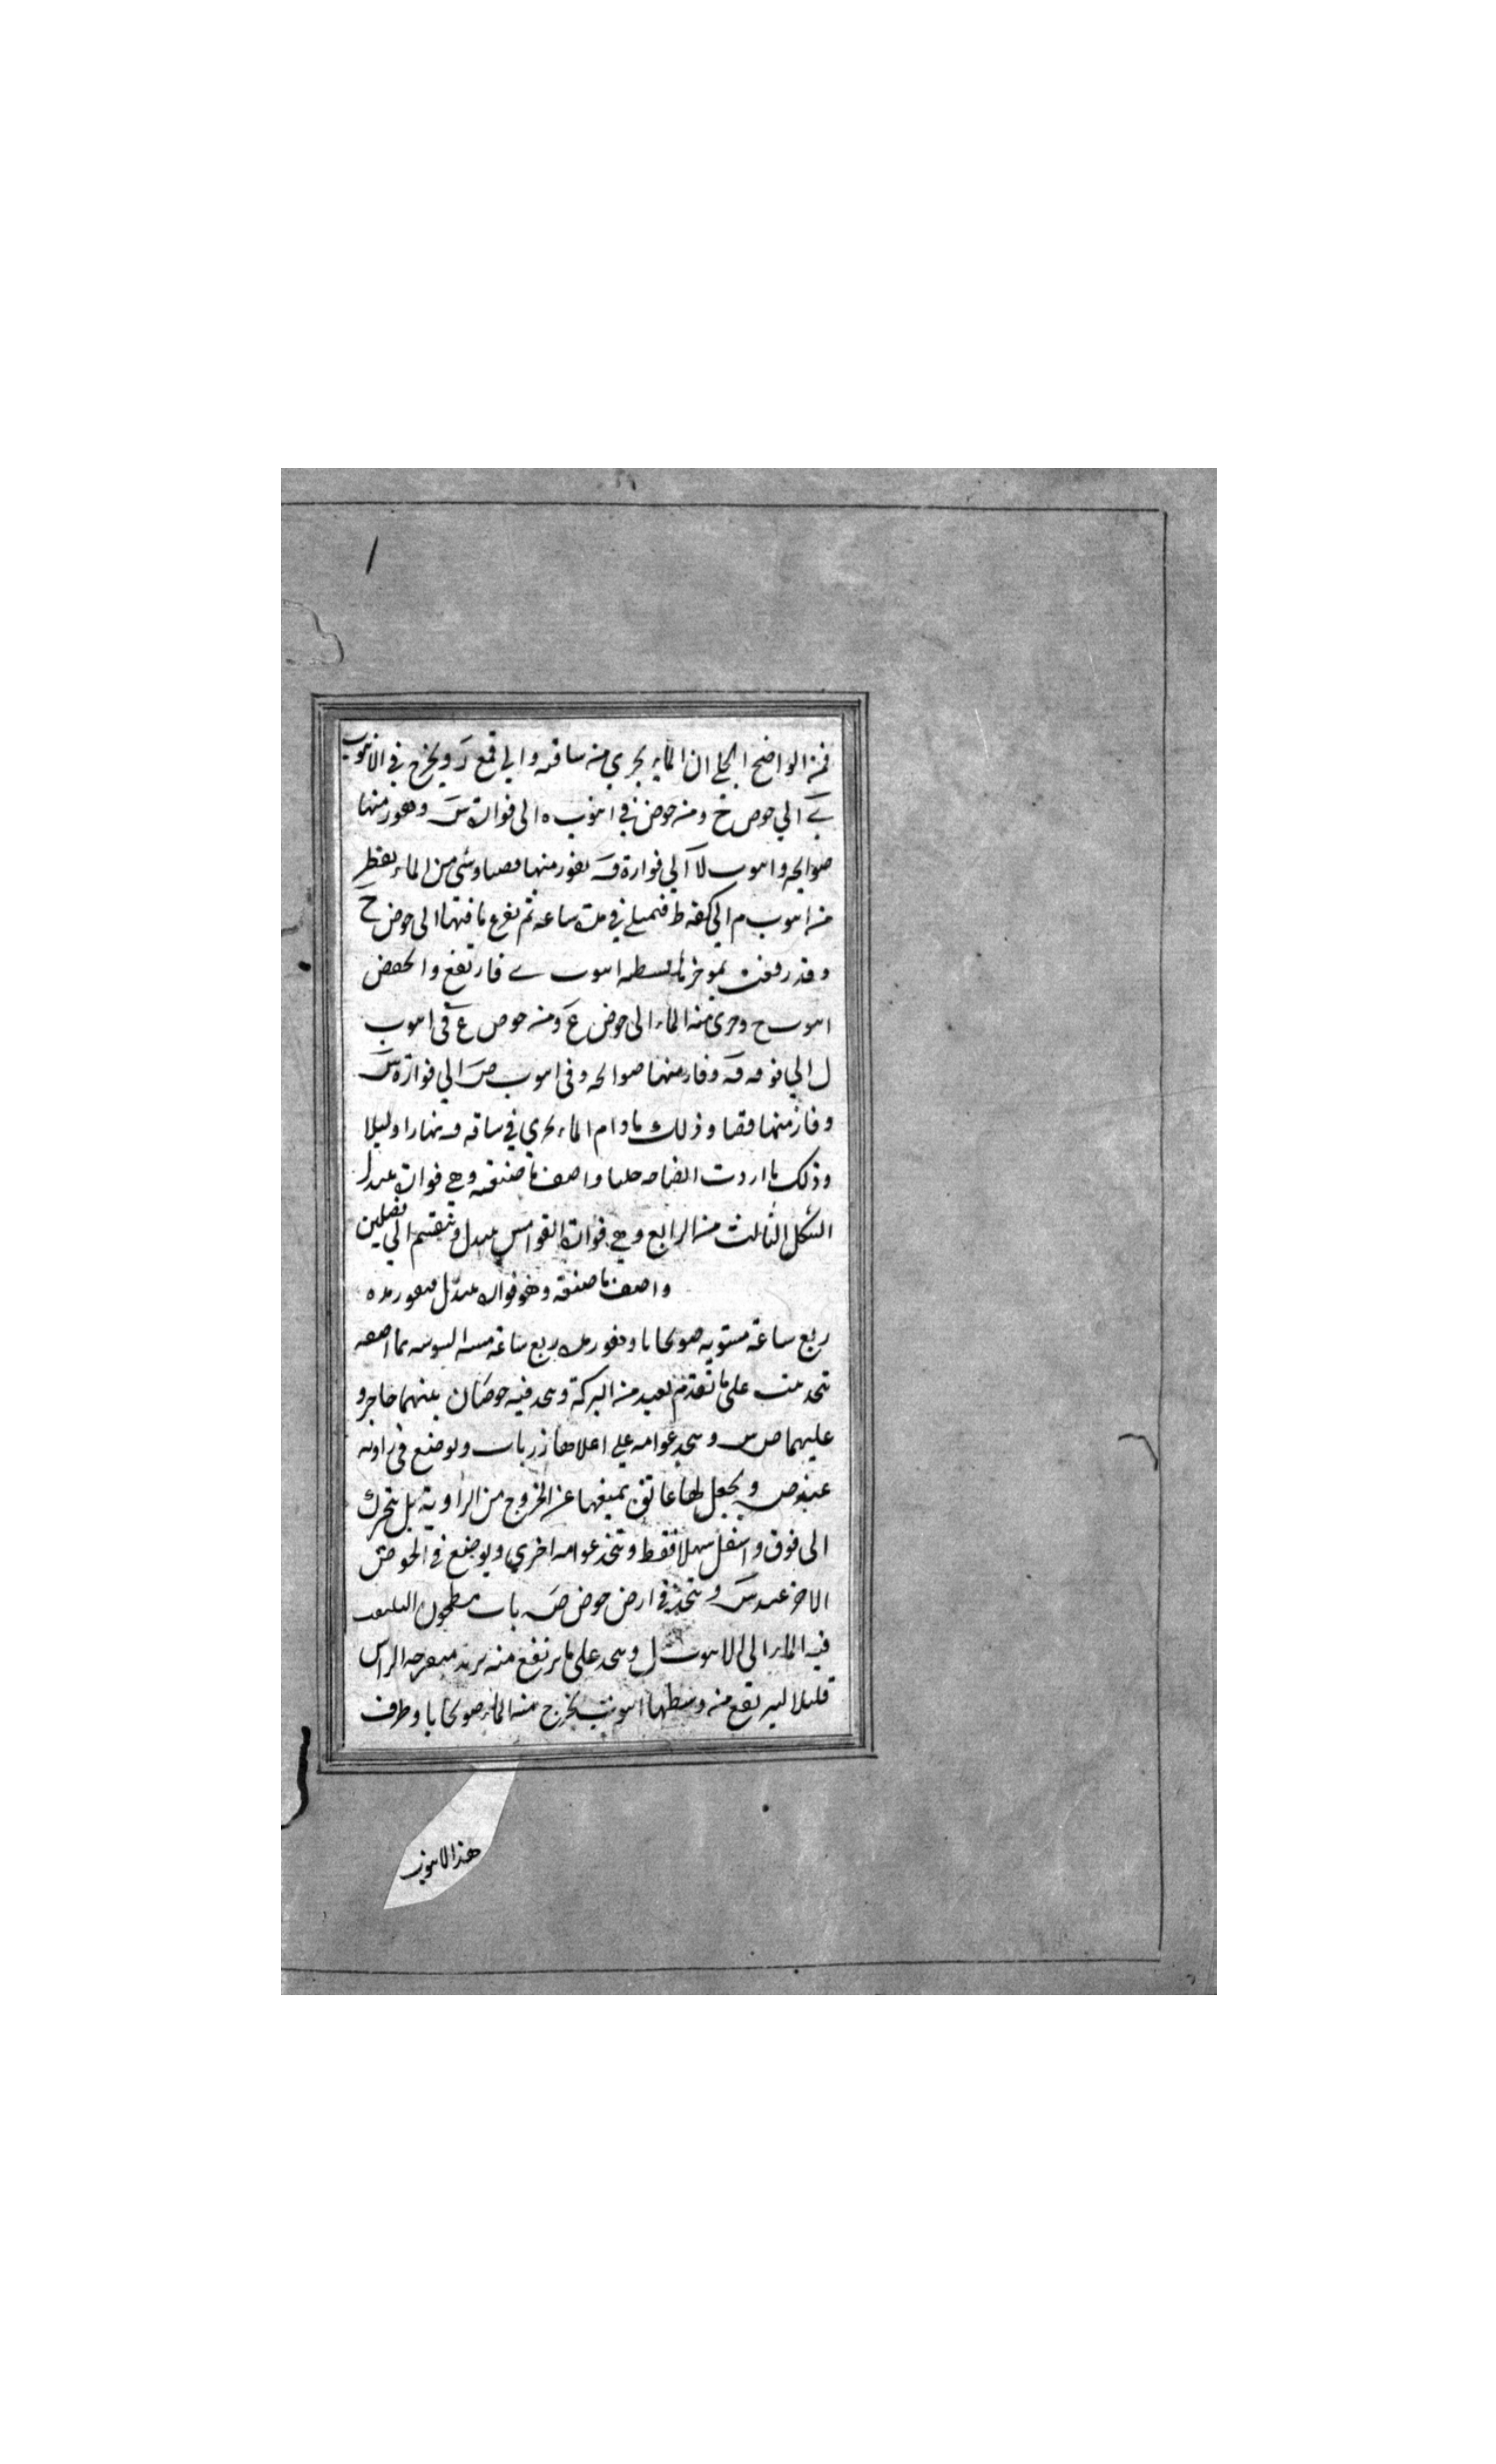 فمن الواضح الجلي ان الماء يجري من ساقيه و الي قمع د ويخرج في الانبوب
ے الي حوض خ ومن حوض في انبوب ه الى فوارة س وهور منها
صوالجه وانبوب لا الي فوارة ف يفور منها قصبا وشي من الماء يقطر
من انبوب م الي كفه ط فتمتلي في مدت ساعه ثم يفرغ ما فيها الى حوض ح
وقد رفعت بموخرها انبوب ے فارتفع وانخفض
انبوب ح وجرى منه الماء الى حوض ع ومن حوض ع في انبوب
ل الي فوهه ف وفار منها صوالجه وفي انبوب ص الي فوارة س
وفار منها قصبا وذلك مادام الماء يجري في ساقيه و نهارا وليلا
وذلك ما اردت ايضاحه جليا واصف ما صنعته وهي فوارة تتبدل
الشكل الثالث من الرابع وهي فوارة القوامس تتبدل وتنقسم الي فصلين
واصف ما صنعته وهو فوارة تتبدل فيفور مده
ربع ساعة مستويه صولجانا وتفور مده ربع ساعة
تتخذ بيت على ما تقدم بعيد من البركة ويتخذ فيه حوضان بينهما حاجز و
عليهما ص س ويتخذ عوامه علي اعلاها زر باب ويوضع في زاويه
عند ص ويجعل لها عاتق يمنعها عن الخروج من الزاوية بل يتحرك
الى فوق واسفل سهلا فقط ويتخذ عوامه اخري ويوضع في الحوض
الاخر عند س ويتخذ في ارض حوض ص باب مطحون
فيه الماء الى الانبوب ل ويتخذ على ما يرتفع منه الراس
قليلا ليرتفع من وسطها انبوب يخرج منه الماء صولجانا وطرف
هذا الانبوب